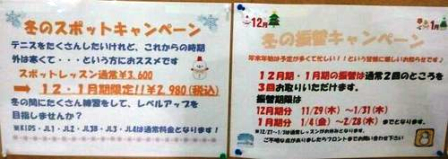 冬のスポットキャンペーン
テニスをたくさんしたいけれど、これからの時期
外は寒くて・・・という方におススメです
スポットレッスン通常¥3,600
⇒ 12・1月期限定!!¥2,980(税込)
冬の間にたくさん練習をして、レベルアップを
目指しませんか?
※KIDS・JL1・JL2・JL3・JL4は通常料金となります!
12月
1月
冬の振替キャンペーン
年末年始は予定が多くて忙しい!!という皆様に嬉しいお知らせです♪
12月期・1月期の振替は通常2回のところを
3回お取りいただけます。
振替期限は
12月期分 11/29(木)~1/31(木)
1月期分 1/4(金)~2/28(木)までとなります。
ご不明な点がありましたらフロントまでお問い合わせ下さい